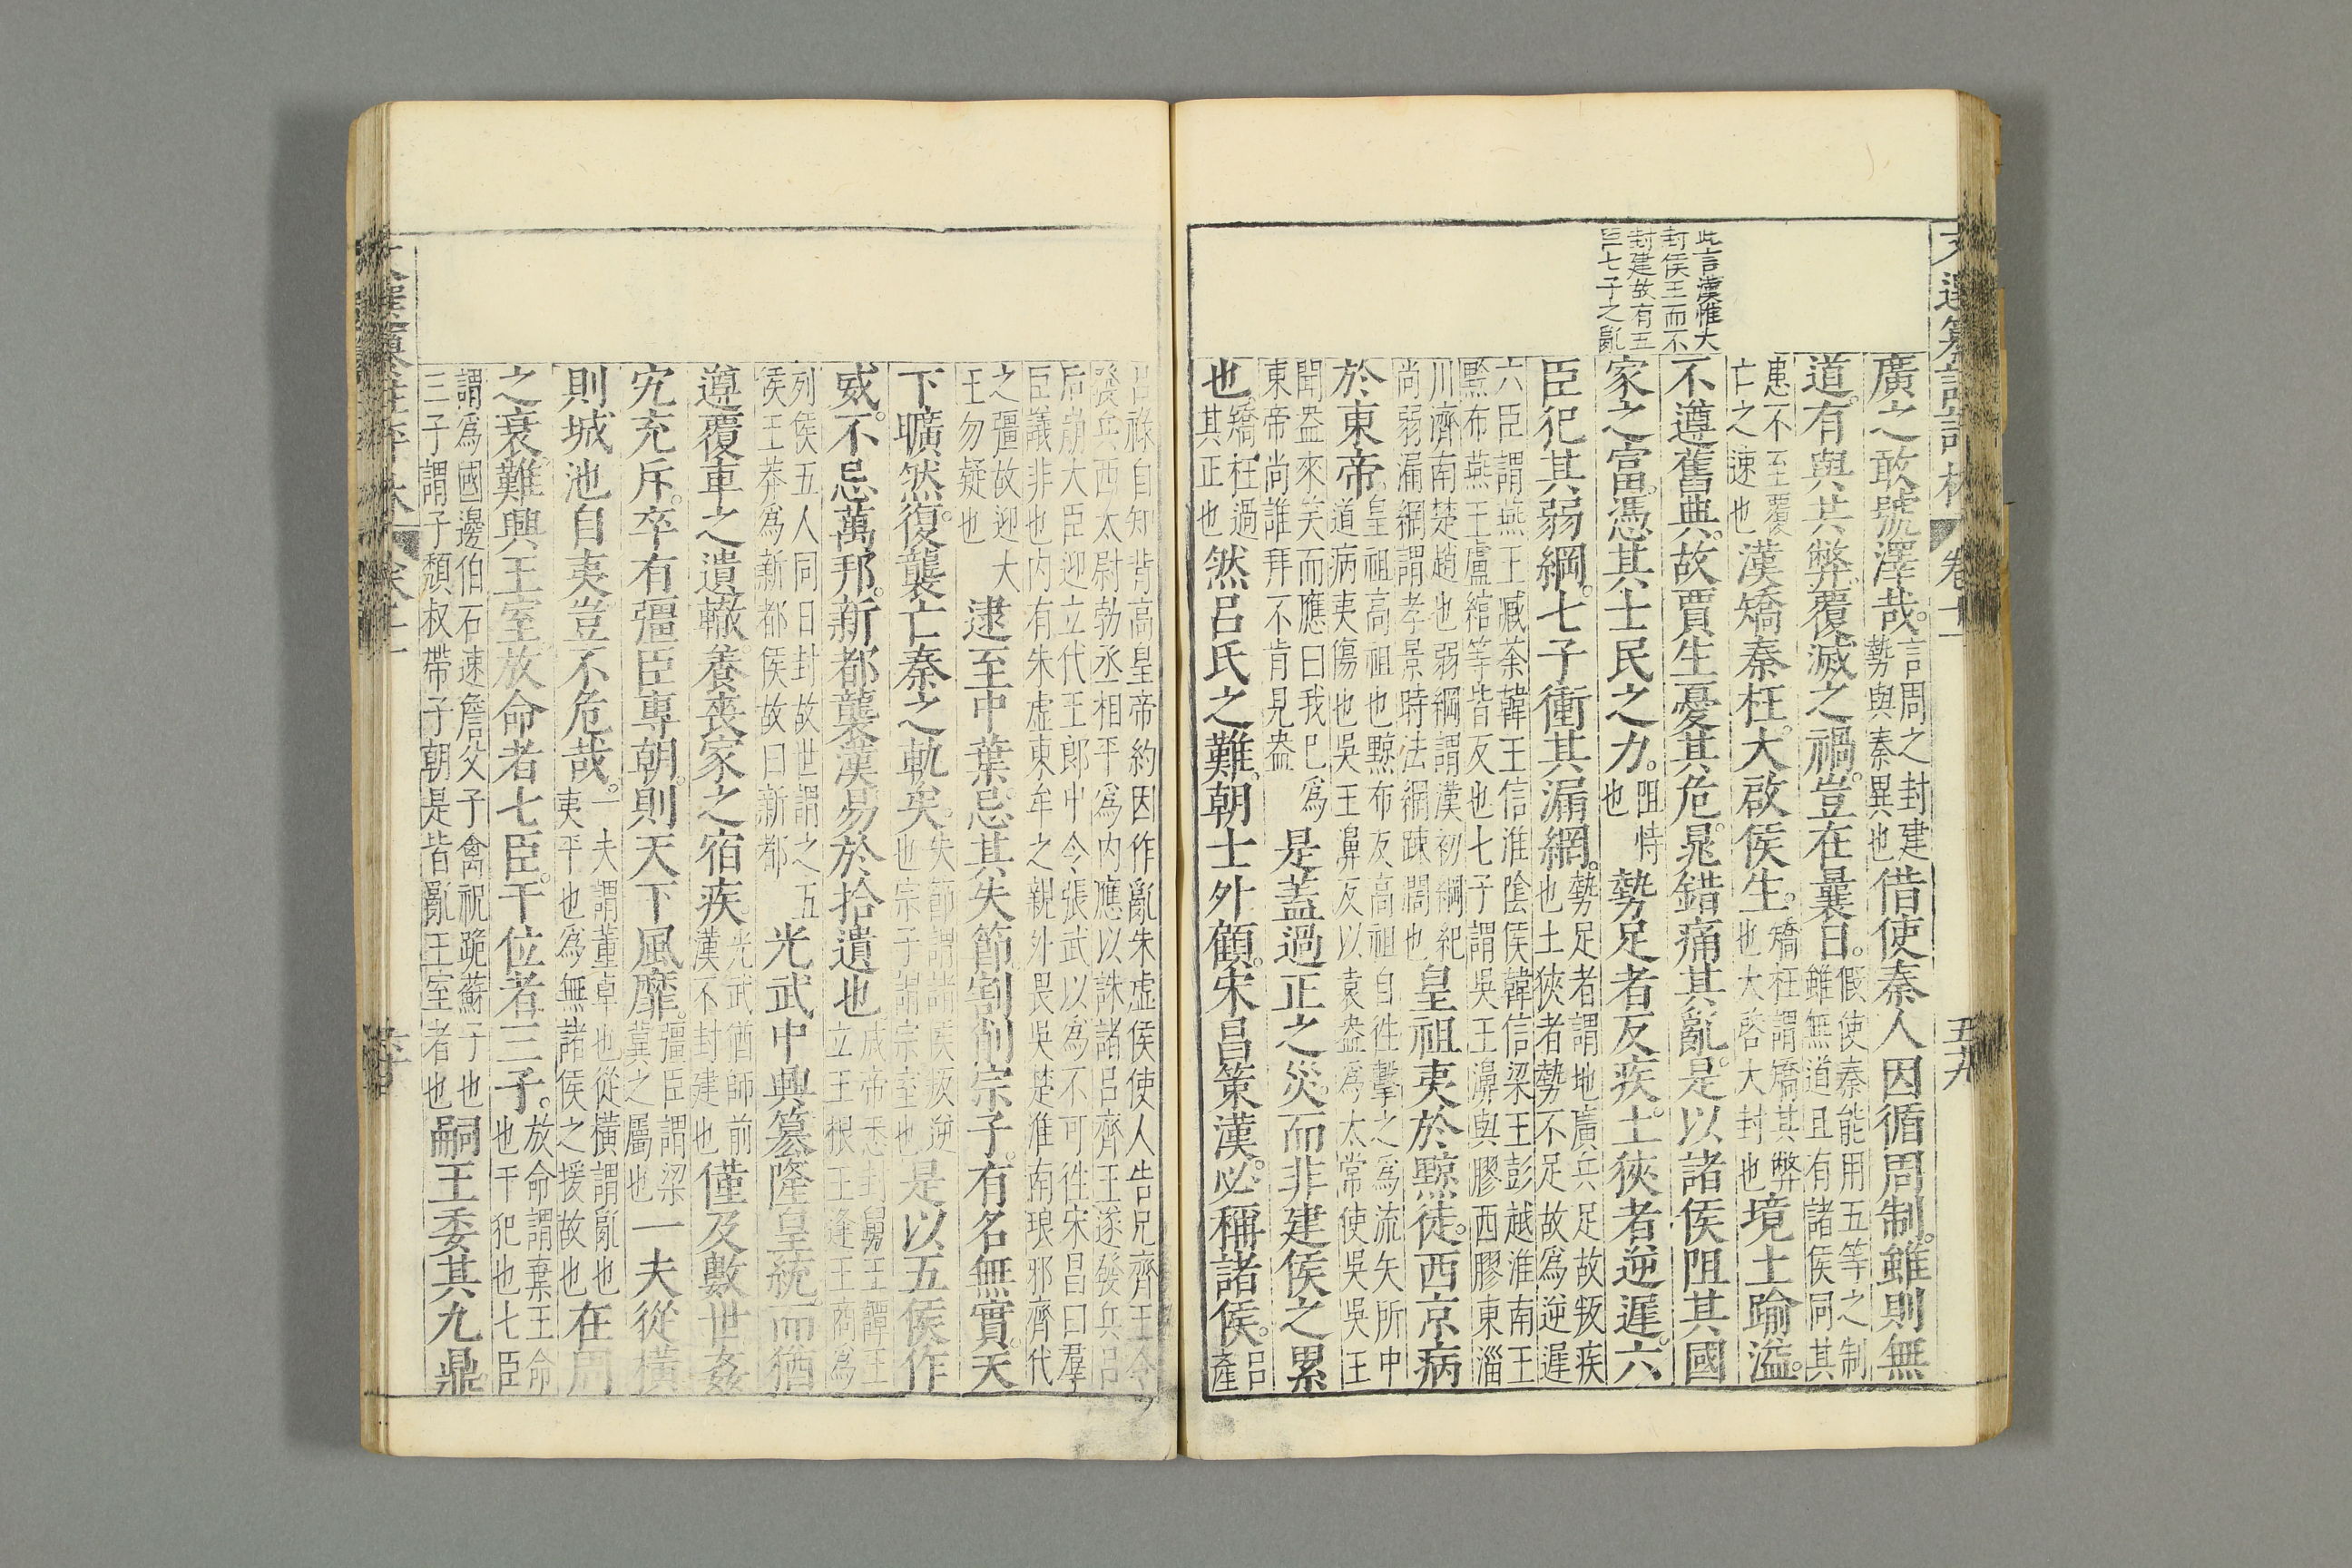 文選纂註評林 卷十一 五十九
此言漢惟大
封侯王而不
封建故有五
臣七子之亂
廣之敢號澤哉。言周之封建勢與秦異也借使秦人因循周制。雖則無
道。有與共弊。覆滅之禍。豈在曩日。假使秦能用五等之制雖無道且有諸侯同其
患不至覆亡之速也漢矯秦枉。大啟侯生。矯枉謂矯其弊也大啓大封也境土踰溢。
不遵舊典。故賈生憂其危。晁錯痛其亂。是以諸侯阻其國
家之富。憑其士民之力。阻恃也勢足者反疾。土狹者逆遲。六
臣犯其弱綱。七子衝其漏網。勢足者謂地廣兵足故叛疾也土狹者勢不足故爲逆遲
六臣謂燕王臧荼韓王信淮陰侯韓信梁王彭越淮南王黥布燕王盧綰等皆反也七子謂吳王濞與膠西膠東淄
川濟南楚趙也弱綱謂漢初綱紀尚弱漏網謂孝景時法網踈闊也皇祖夷於黥徒。西京病
於東帝。皇祖高祖也黥布反高祖自徃擊之爲流矢所中道病夷傷也吳王濞反以袁盎爲太常使吳吳王
聞盎來笑而應曰我已爲東帝尚誰拜不肯見盎是蓋過正之災。而非建侯之累
也。矯枉過其正也然呂氏之難。朝士外顧。宋昌策漢。必稱諸侯。呂產
呂祿自知背高皇帝約因作亂朱虛侯使人告兄齊王令發兵西太尉勃丞相平爲内應以誅諸呂齊王遂發兵呂
后崩大臣迎立代王郎中令張武以爲不可徃宋昌曰羣臣議非也内有朱虛東牟之親外畏吳楚淮南琅邪齊代
之彊故迎大王勿疑也逮至中葉。忌其失節。割削宗子。有名無實。天
下曠然。復襲亡秦之軌矣。失節謂諸侯叛逆也宗子謂宗室也是以五侯作
威。不忌萬邦。新都襲漢。易於拾遺也成帝悉封舅王譚王立王根王逢王商爲
列侯五人同日封故世謂之五侯王莽爲新都侯故曰新都光武中興。纂隆皇統。而猶
遵覆車之遺轍。養喪家之宿疾。光武猶師前漢不封建也僅及數世。姦
宄充斥。卒有彊臣專朝。則天下風靡。彊臣謂梁冀之屬也一夫從橫
則城池自夷。豈不危哉。一夫謂董卓也從橫謂亂也夷平也爲無諸侯之援故也在周
之衰。難興王室。放命者七臣。干位者三子。放命謂棄王命也干犯也七臣
謂爲國邊伯石速詹父子禽祝跪蘇子也三子謂子頹叔帶子朝是皆亂王室者也嗣王委其九鼎。
文選纂註評林 卷十一 六十